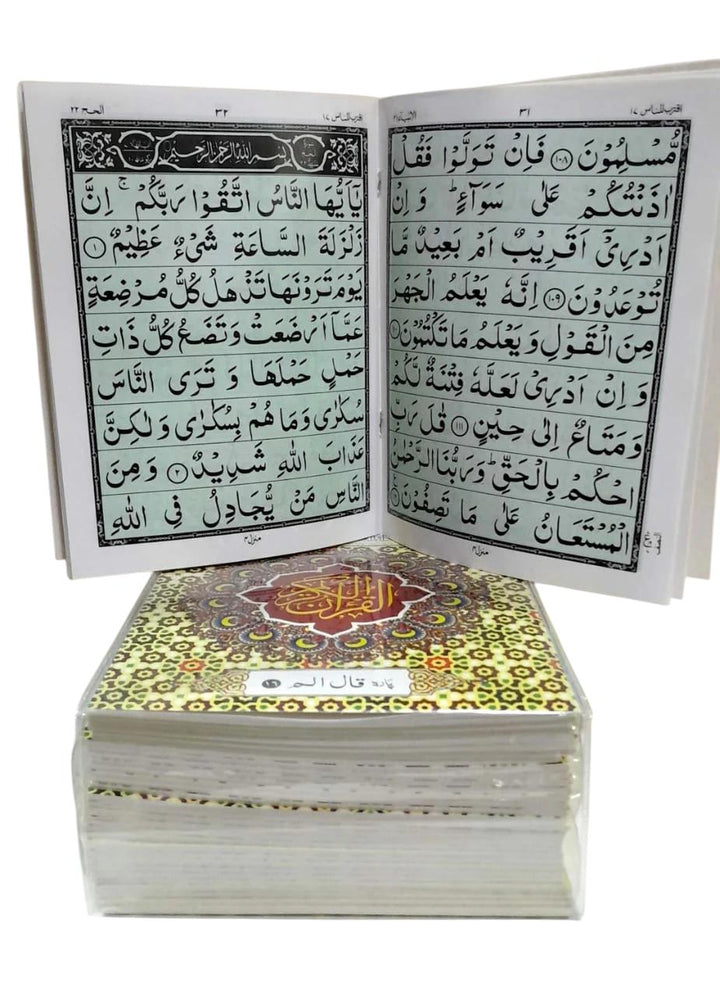 اقترب للناس ١٧ ٣١ الانبياء ٢١
مُّسْلِمُوْنَ ١٠٨ فَاِنْ تَوَلَّوْا فَقُلْ
اٰذَنْتُكُمْ عَلٰى سَوَآءٍ ؕ وَ اِنْ
اَدْرِىْۤ اَقَرِيْبٌ اَمْ بَعِيْدٌ مَّا
تُوْعَدُوْنَ ١٠٩ اِنَّهٗ يَعْلَمُ الْجَهْرَ
مِنَ الْقَوْلِ وَ يَعْلَمُ مَا تَكْتُمُوْنَ ١١٠
وَ اِنْ اَدْرِىْ لَعَلَّهٗ فِتْنَةٌ لَّكُمْ
وَ مَتَاعٌ اِلٰى حِيْنٍ ١١١ قٰلَ رَبِّ
احْكُمْ بِالْحَقِّ ؕ وَ رَبُّنَا الرَّحْمٰنُ
الْمُسْتَعَانُ عَلٰى مَا تَصِفُوْنَ
منزل٤
اقترب للناس ١٧ ٣٢ الحج ٢٢
بسم الله الرحمن الرحيم
يٰۤاَيُّهَا النَّاسُ اتَّقُوْا رَبَّكُمْ ۚ اِنَّ
زَلْزَلَةَ السَّاعَةِ شَيْءٌ عَظِيْمٌ ١
يَوْمَ تَرَوْنَهَا تَذْهَلُ كُلُّ مُرْضِعَةٍ
عَمَّاۤ اَرْضَعَتْ وَ تَضَعُ كُلُّ ذَاتِ
حَمْلٍ حَمْلَهَا وَ تَرَى النَّاسَ
سُكٰرٰى وَ مَا هُمْ بِسُكٰرٰى وَ لٰكِنَّ
عَذَابَ اللّٰهِ شَدِيْدٌ ٢ وَ مِنَ
النَّاسِ مَنْ يُّجَادِلُ فِى اللّٰهِ
منزل٤
القرآن الكريم
پارہ قال الم ١٦